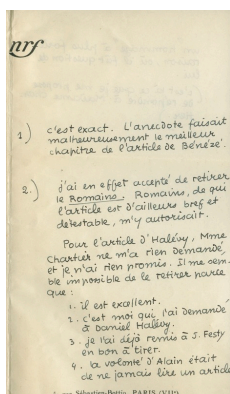 nrf
1) c'est exact. L'anecdote faisait
malheureusement le meilleur
chapitre de l'article de Bénézé.
2.) j'ai en effet accepté de retirer
le Romains. Romains, de qui
l'article est d'ailleurs bref et
détestable, m'y autorisait.
Pour l'article d'Halévy, Mme
Chartier ne m'a rien demandé
et je n'ai rien promis. Il me sem-
ble impossible de le retirer parce
que :
1. il est excellent.
2. c'est moi qui l'ai demandé
à Daniel Halévy.
3. je l'ai déjà remis à J. Festy
en bon à tirer.
4. la volonté d'Alain était
de ne jamais lire un article
Sébastien-Bottin, PARIS (VIIe)